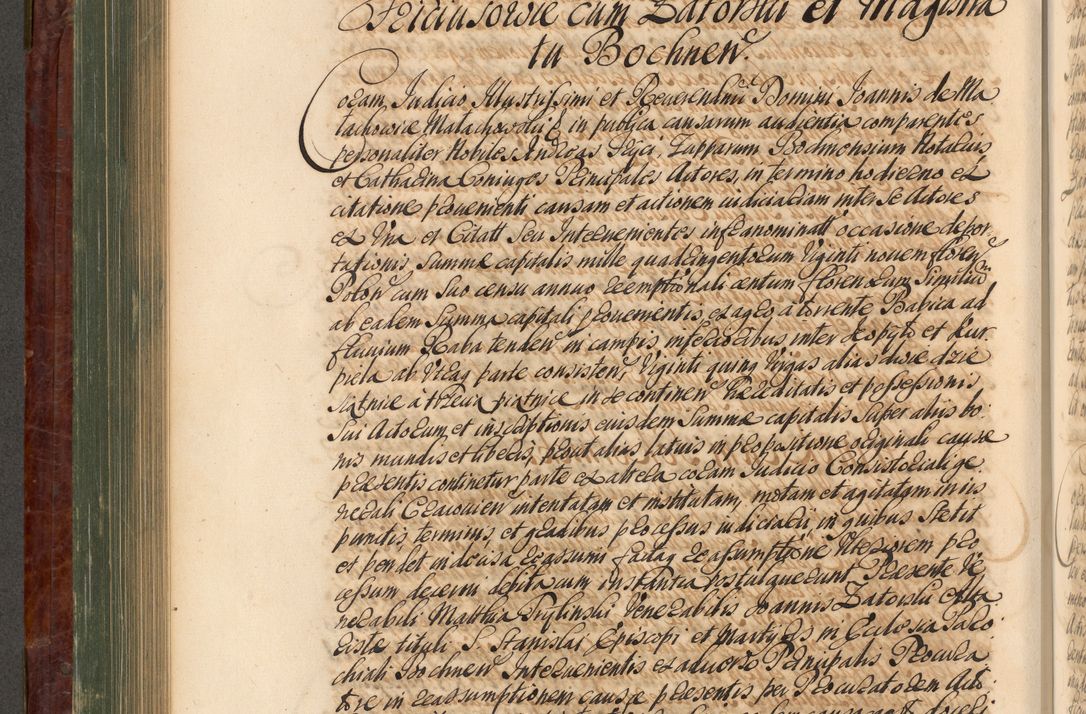 Feiciasowie cum Zatorski et Magistra
tu Bochnen.
Coram Judicio Illustrissimi et Reverendmi Domini Joannis de Ma
lachowice Malachowskij & in publica causarum audientia comparentes
personaliter Nobiles Andreas Fejci, Zupparum Bochnensium Notarius
et Catharina Coniuges Principales Actores, in termino hodierno ex
citatione provenienti causam et actionem iudiciariam inter se Actores
ex una et Citatt seu Intervenientes infranominatt occasione depor
tationis, Summæ capitalis mille quadringentorum Viginti novem floren
Polon cum suo censu annuo reemptionali centum florenorum similiu
ab eadem Summa capitali provenientis, ex agro a torrente Babica ad
fluvium Raba tenden in campis inferioribus inter Kopyto et Kur
piela ab utraq parte consisten, Viginti quinq Virgas alias
in se continen hæreditatis et possessionis
sui Actorum, et inscriptionis eiusdem Summæ capitalis super aliis bo
nis mundis et liberis, prout alias latius in propositione originali causæ
præsentis continetur parte ex altera coram Judicio Consistoriali ge
nerali Cracovien intentatam et institutam, motam et agitatam in iis
punctis, terminis, et gradibus processus iudiciarii in quibus stetit
et pendet indecisa reassumi factaq reassumptione ulteriorem pro
cessum decerni debita cum instantia postulaverunt Præsente Ve
nerabili Matthia Siglinski Venerabilis Joannis Zatorski Alta
ristæ tituli S. Stanislai Episcopi et Martyris in Ecclesia Paro
chiali Bochnen Intervenientis ex adverso Principalis Procura
tore in reassumptionem causæ præsentis per Procuratorem Acto